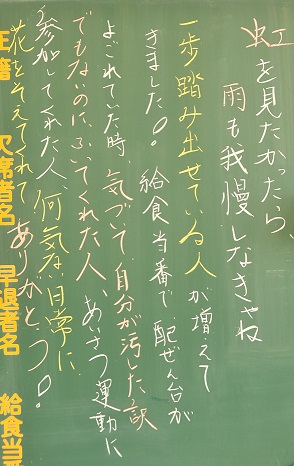 虹を見たかったら、
雨も我慢しなきゃね
一歩踏み出せている人が増えて
きました!。給食当番で配ぜん台が
よごれていた時、気づいて、自分が汚した訳
でもないのに、ふいてくれた人、あいさつ運動に
参加してくれた人、何気ない日常に
花をそえてくれて ありがとう!
在籍 欠席者名 早退者名 給食当